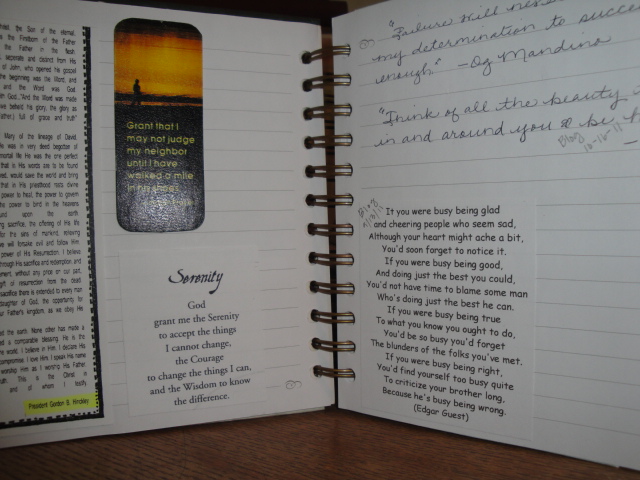 the Son of the eternal
the Firstborn of the Father
the Father in the flesh
separate and distinct from His
of John, who opened his gospel
the beginning was the Word, and
and the Word was God
with God..."And the Word was made
(we beheld his glory, the glory as
Father,) full of grace and truth"
Mary, of the lineage of David,
was in very deed begotten of
mortal life He was the one perfect
that in His words are to be found
would save the world and bring
that in His priesthood rests divine
power to heal, the power to govern
the power to bind in the heavens
bound upon the earth
sacrifice, the offering of His life
for the sins of mankind, relieving
we will forsake evil and follow Him.
power of His Resurrection. I believe
through His sacrifice and redemption, and
without any price on our part,
gift of resurrection from the dead.
sacrifice there is extended to every man
daughter of God, the opportunity for
our Father's kingdom, as we obey
the earth. None other has made a
a comparable blessing. He is the
world. I believe in Him. I declare His
compromise. I love Him. I speak His name
worship Him as I worship His Father,
truth. This is the Christ in
and of whom I testify
President Gordon B. Hinckley
Grant that I
may not judge
my neighbor
until I have
walked a mile
in his shoes.
Serenity
God
grant me the Serenity
to accept the things
I cannot change,
the Courage
to change the things I can,
and the Wisdom to know
the difference.
"Failure will never
my determination to succeed
enough." -Og Mandino
"Think of all the beauty
in and around you & be
Blog
10-18-11
Blog
If you were busy being glad
and cheering people who seem sad,
Although your heart might ache a bit,
You'd soon forget to notice it.
If you were busy being good,
And doing just the best you could,
You'd not have time to blame some man
Who's doing just the best he can.
If you were busy being true
To what you know you ought to do,
You'd be so busy you'd forget
The blunders of the folks you've met.
If you were busy being right,
You'd find yourself too busy quite
To criticize your brother long,
Because he's busy being wrong.
(Edgar Guest)